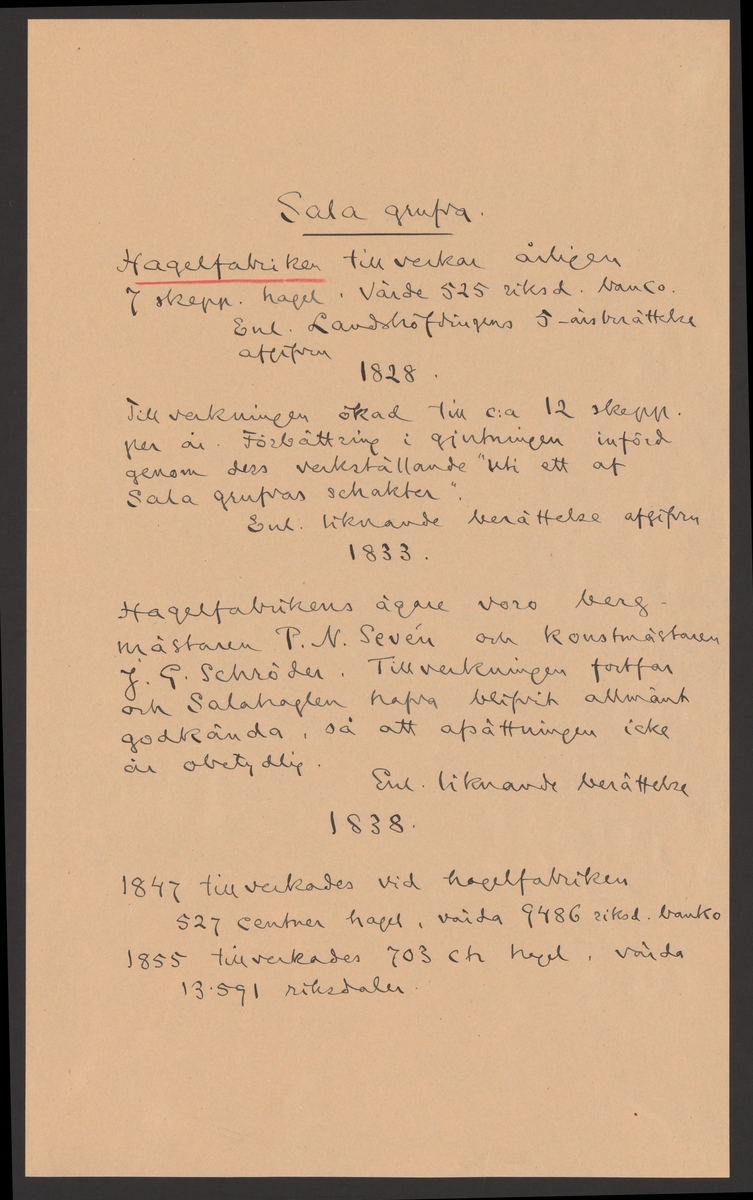 Sala grufva.
Hagelfabriken tillverkar årligen
7 skepp. hagel. Värde 525 riksd. banco.
Enl. Landshöfdingens 5-årsberättelse
afgifven
1828.
Tillverkningen ökad till c:a 12 skepp.
per år. Förbättring i gjutningen införd
genom dess verkställande "uti ett af
Sala grufvas schakter".
Enl. liknande berättelse afgifven
1833.
Hagelfabrikens ägare voro berg-
mästaren P. N. Sevén och konstmästaren
J. G. Schröder. Tillverkningen fortfar
och Salahaglen hafva blifvit allmänt
godkända, så att afsättningen icke
är obetydlig.
Enl. liknande berättelse
1838.
1847 tillverkades vid hagelfabriken
527 centner hagel, värda 9486 riksd. banko
1855 tillverkades 703 ctr hagel, värda
13.591 riksdaler.